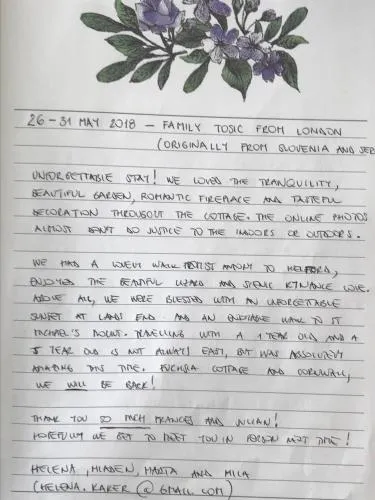 26-31 MAY 2018 - FAMILY TOSIC FROM LONDON
(ORIGINALLY FROM SLOVENIA AND SER
UNFORGETTABLE STAY! WE LOVED THE TRANQUILITY,
BEAUTIFUL GARDEN, ROMANTIC FIREPLACE AND TASTEFUL
DECORATION THROUGHOUT THE COTTAGE. THE ONLINE PHOTOS
ALMOST DON'T DO JUSTICE TO THE INDOORS OR OUTDOORS.
WE HAD A LOVELY WALK TO HELFORD,
ENJOYED THE BEAUTIFUL LIZARD AND SCENIC KYNANCE COVE.
ABOVE ALL, WE WERE BLESSED WITH AN UNFORGETTABLE
SUNSET AT LANDS END AND AN ENJOYABLE WALK TO ST
MICHAEL'S MOUNT. TRAVELLING WITH A 1 YEAR OLD AND A
5 YEAR OLD IS NOT ALWAYS EASY, BUT WAS ABSOLUTELY
AMAZING THIS TIME. FUCHSIA COTTAGE AND CORNWALL,
WE WILL BE BACK!
THANK YOU SO MUCH FRANCES AND JULIAN!
HOPEFULLY WE GET TO MEET YOU IN PERSON NEXT TIME!
HELENA, MLADEN, MANTA AND MILA
(HELENA.KAKER @ GMAIL.COM)